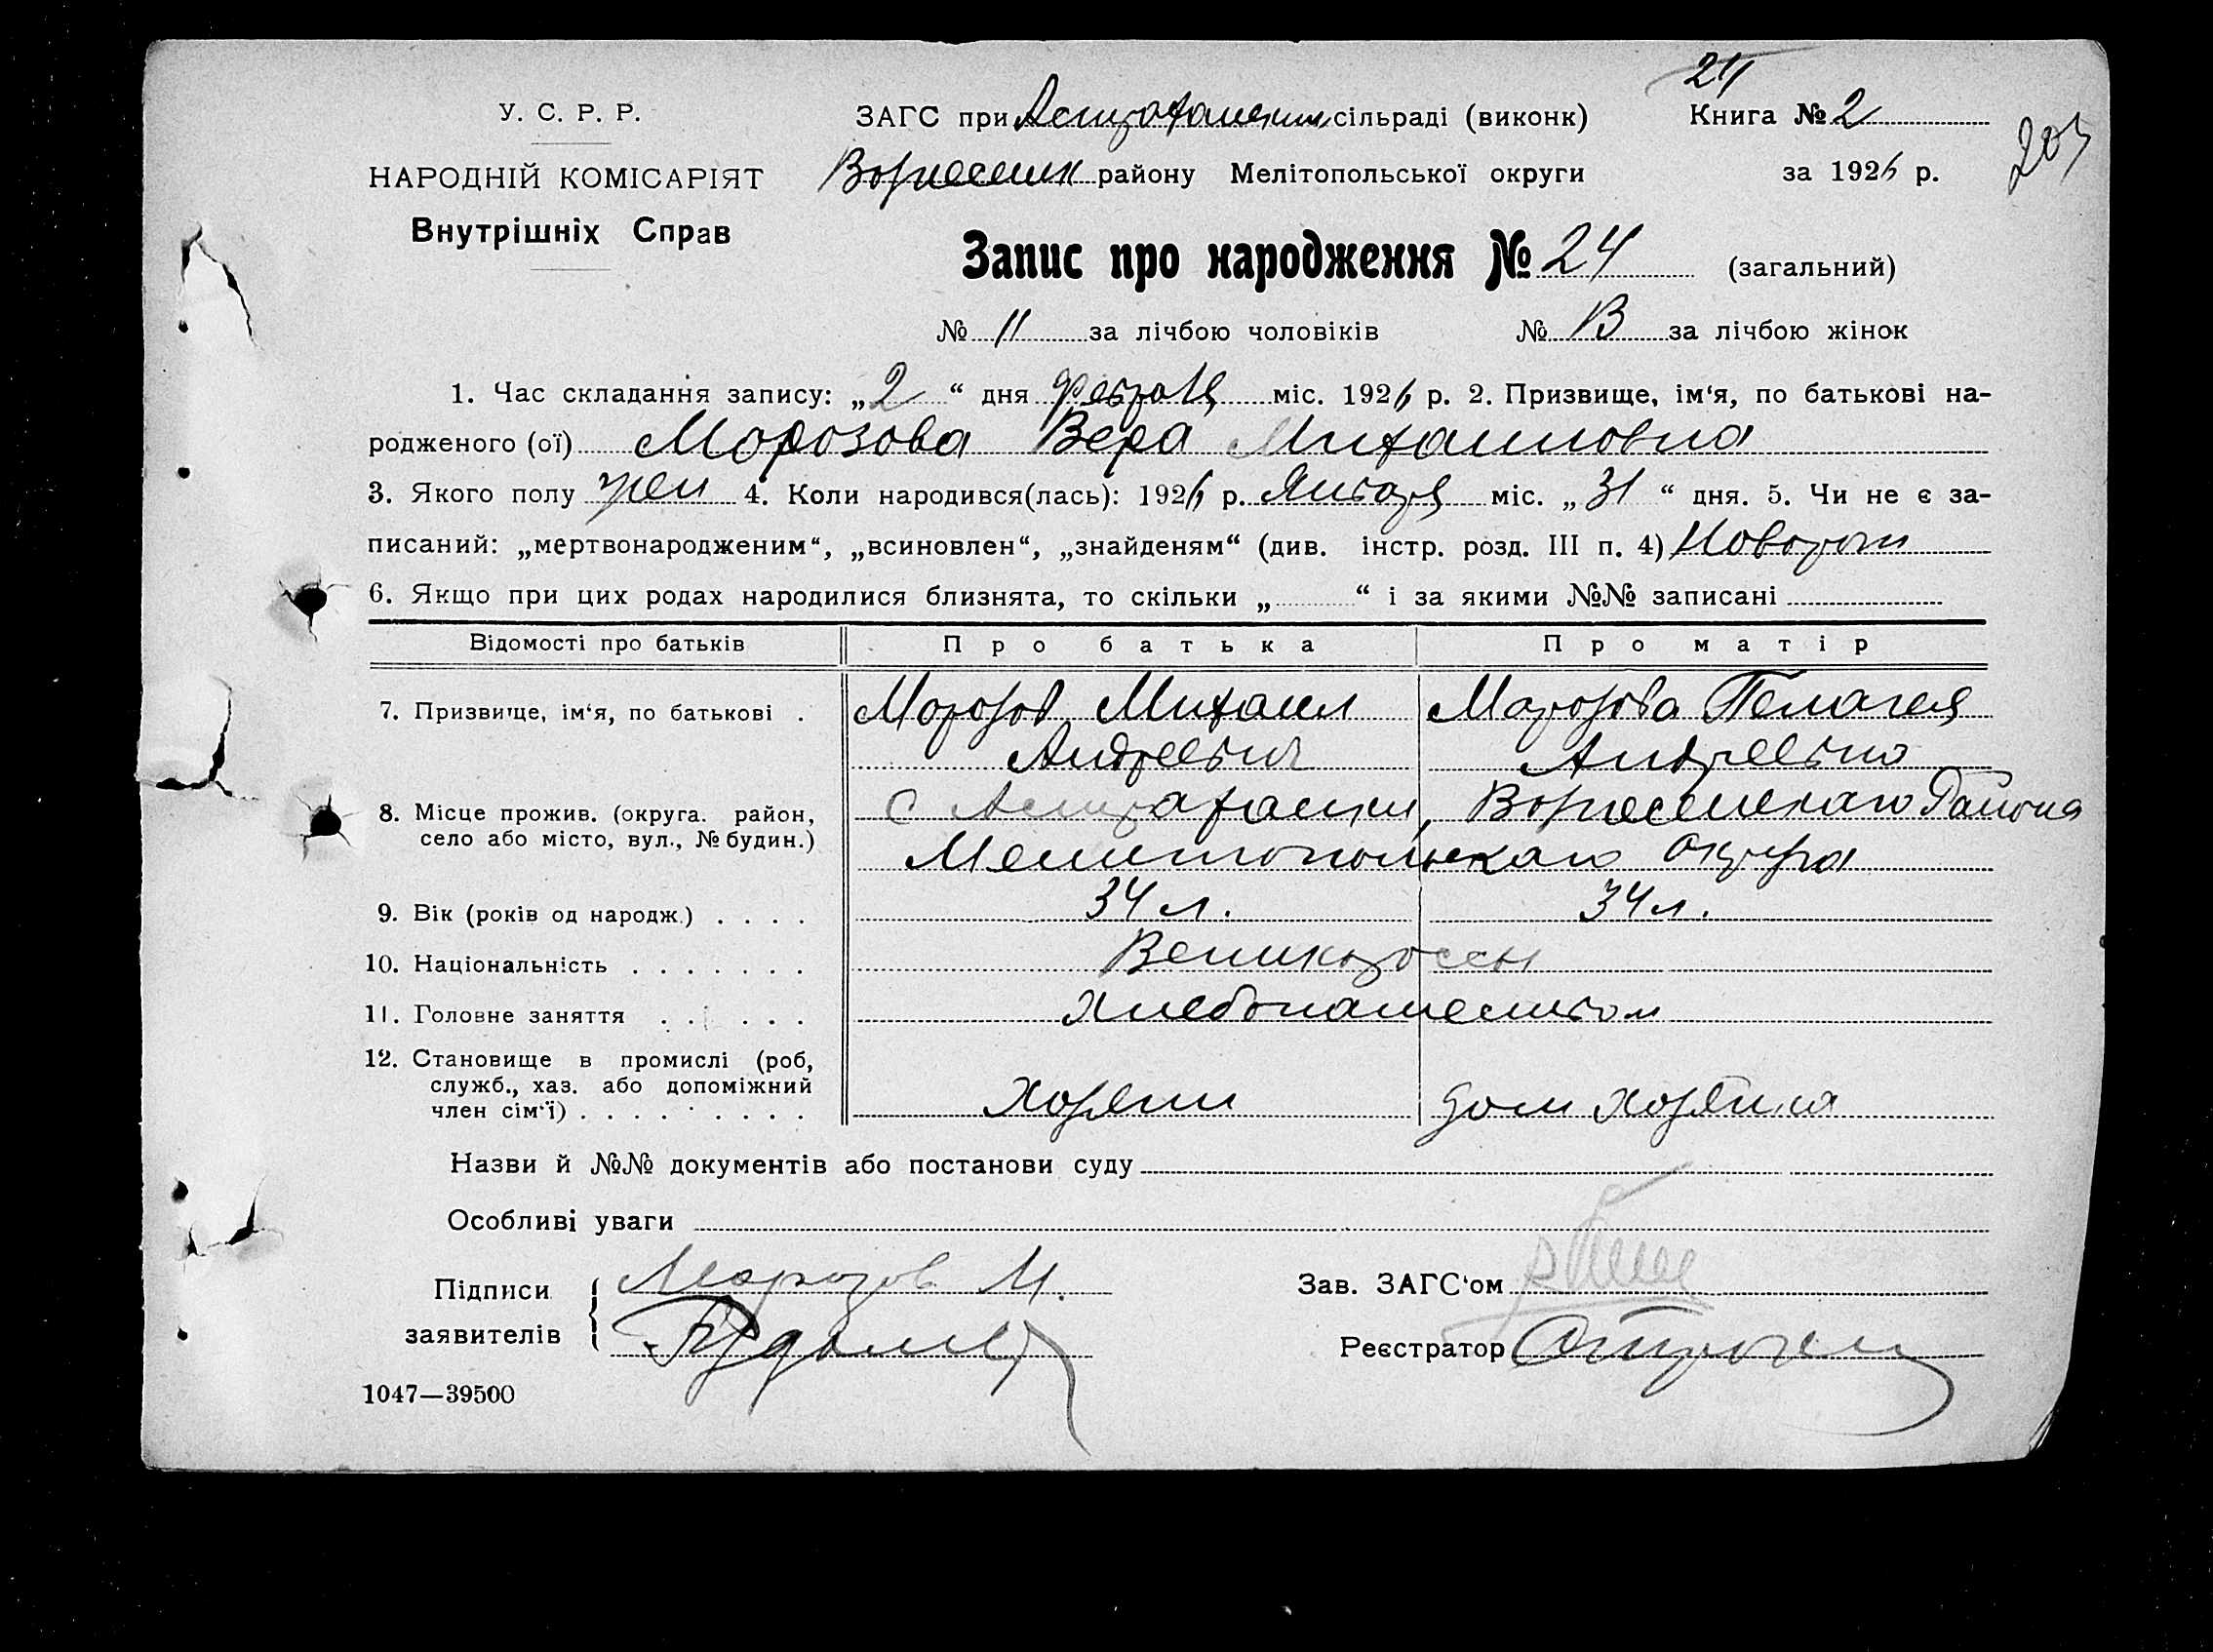 24
У. С. Р. Р.
ЗАГС при Астраханским сільраді (виконк)
Книга № 2
НАРОДНІЙ КОМІСАРІЯТ
Вознесенк району Мелітопольської округи
за 1926 р.
203
Внутрішніх Справ
Запис про народження № 24 (загальний)
№ 11 за лічбою чоловіків № 13 за лічбою жінок
1. Час складання запису: „2“ дня февраля міс. 1926 р. 2. Призвище, ім‘я, по батькові на-
родженого (ої) Морозова Вера Михаиловна
3. Якого полу жен 4. Коли народився(лась): 1926 р. Января міс. „31“ дня. 5. Чи не є за-
писаний: „мертвонародженим“, „всиновлен“, „знайденям“ (див. інстр. розд. III п. 4) Новорож
6. Якщо при цих родах народилися близнята, то скільки „ “ і за якими №№ записані
Відомості про батьків Про батька Про матір
7. Призвище, ім‘я, по батькові . Морозов Михаил Морозова Пелагея
Андреевич Андреевна
8. Місце прожив. (округа. район, с Астраханки, Вознесенскаго Района
село або місто, вул., № будин.)
Мелитопольскаго Округа
9. Вік (років од народж.) . . . . 34 л. 34 л.
10. Національність . . . . . . . Великороссы
11. Головне заняття . . . . . . Хлебопашеством
12. Становище в промислі (роб,
служб., хаз. або допоміжний
член сім‘ї) . . . . . . . . . Хозяин дом хозяйка
Назви й №№ документів або постанови суду
Особливі уваги
Підписи Морозов М.
заявителів
Зав. ЗАГС‘ом
Реєстратор
1047—39500